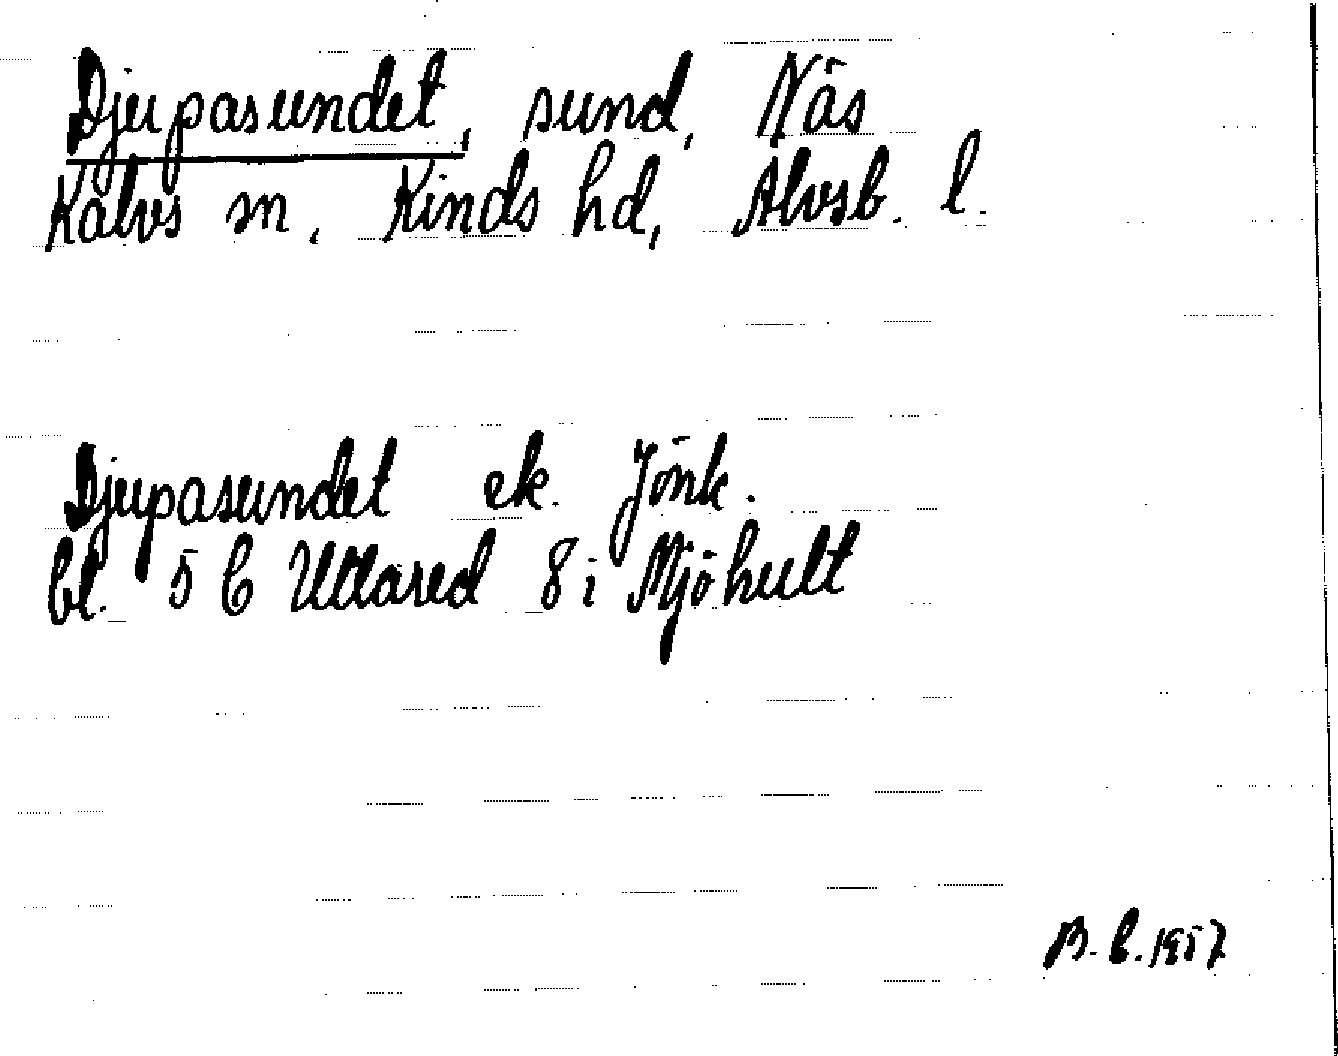 Djupasundet, sund, Näs
Kalvs sn, Kinds hd, Älvsb. l.
Djupasundet ek. Jönk.
bl. 5 C Ullared 8 i Mjöhult
B.C. 1957